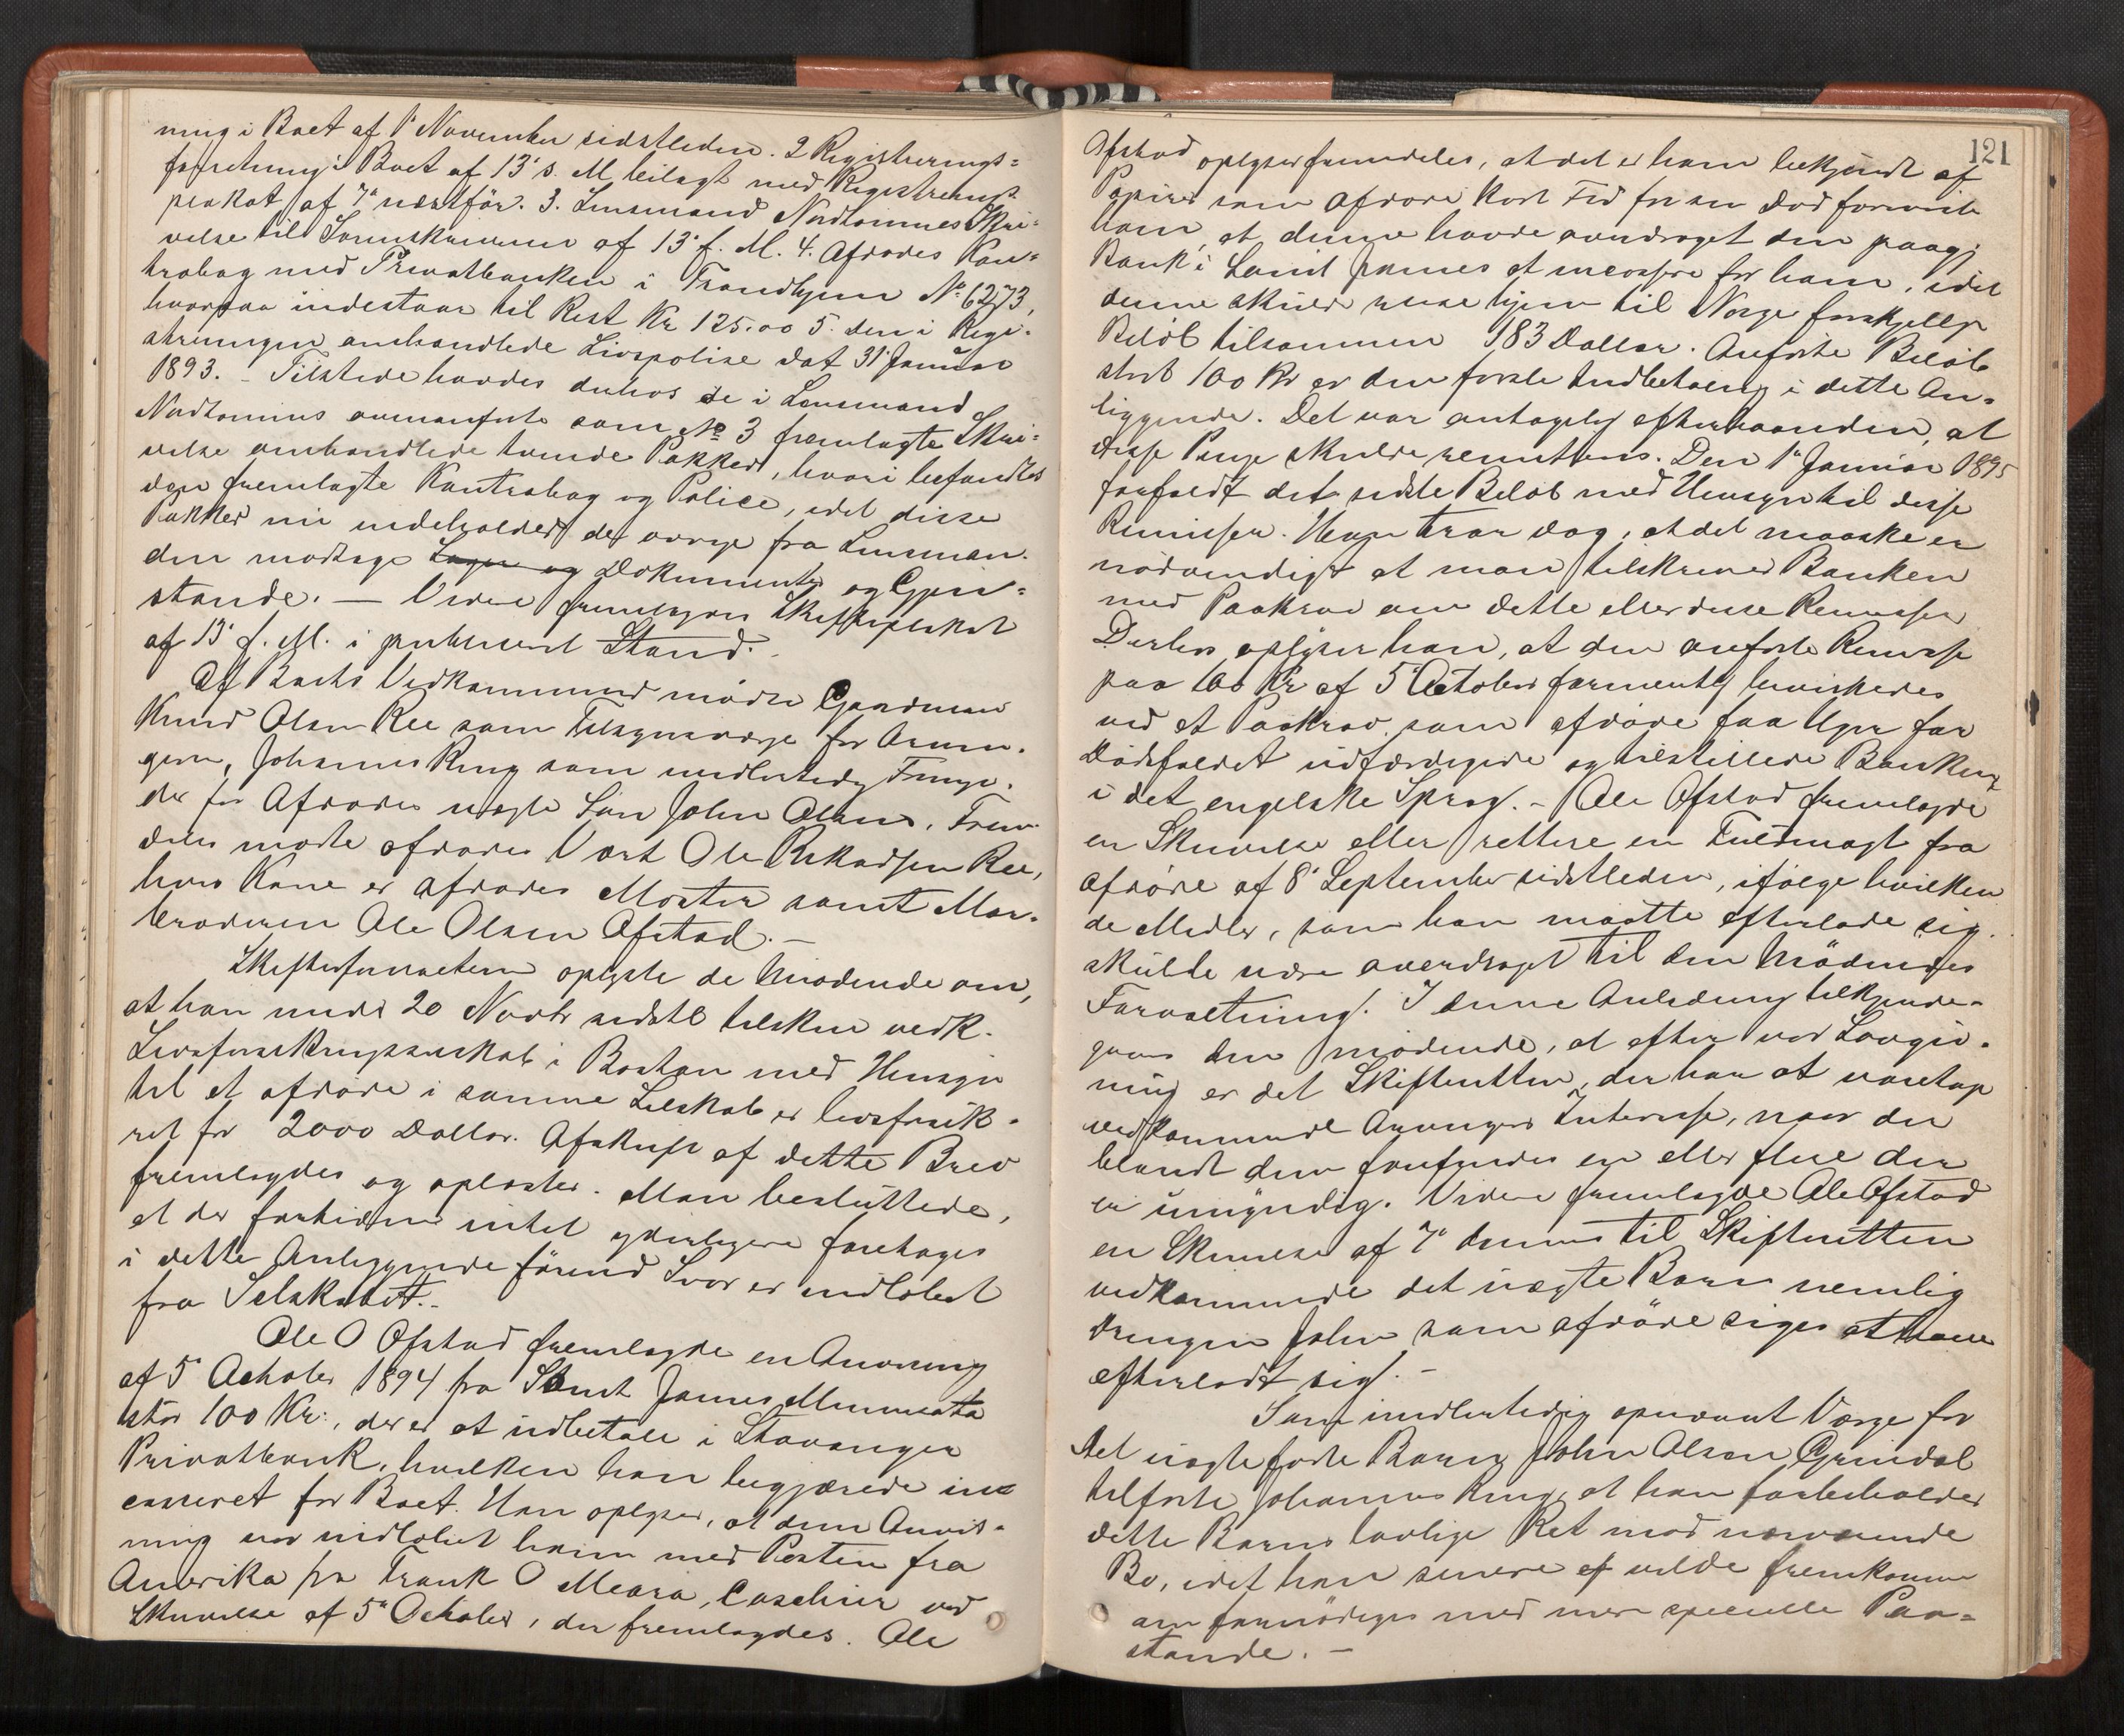 ning i Boet af 1' November sidstleden. 2 Registrerings=
forretning i Boet af 13' s. M. bilagt med Registrerings-
plakat af 7' næstför. 3. Lensmand Nordtømmes Skri=
velse til Sorenskriveren af 13' f. M. 4. Afdødes Kon=
trabog med Privatbanken i Trondhjem No. 6273,
hvorpaa indestaar til Rest Kr 125.00 5. den i Regi-
streringen omhandlede Livspolise dat 31' Januar
1893. - Tilstede havdes derhos de i Lensmand
Nordtømmes ovenanførte som No 3 fremlagte Skri=
velse omhandlede tvende Pakker, hvori befandtes
den fremlagte Kontrabog og Police, idet disse
Pakker nu indeholder de øvrige fra Lensman-
den modtage Dokumenter og Gjen=
stande. — Videre fremlagdes Skifteplakat
af 13' f. M. i publiceret Stand.
Af Boets Vedkommende mødte Gaardmand
Knud Olsen Ree som Tilsynsværge for Arvin-
gern, Johannes Ring som midlertidig Fung-
de for Afdødes uægte Søn John Olsen. Frem-
deles mødte afdødes Vært Ole Rikardsen Ree,
hvis Kone er afdødes Moster samt Mor-
broderen Ole Olsen Ofstad. —
Skifteforvalteren oplyste de Mødende om,
at han under 20 Novbr sidstl tilskrev vedk.
Livsforsikringsselskab i Boston med Hensyn
til at afdøde i samme Selskab er livsforsik-
ret for 2000 Dollar. Afskrift af dette Brev
fremlagdes og oplæstes. Man besluttede,
at der fortiden intet yderligere foretages
i dette Anliggende förend Svar er indløbet
fra Selskabet.-
Ole O Ofstad fremlagde en Anvisning
af 5' October 1894 fra Saint James Minnesota
stor 100 Kr., der er at udbetale i Stavanger
Privatbank, hvilken han begjærede in=
casseret for Boet. Han oplyser, at denne Anvis-
ning var indløbet ham med Posten fra
Amerika fra Frank O Meara, Caschier ved
Skrivelse af 5' October, der fremlagdes. Ole
121
Ofstad oplyser fremdeles, at det er ham bekjendt af
Papirer som afdøde kort Tid før sin Død foreviste
ham, at denne havde overdraget den paagj
Bank i Saint James at incassere for ham, idet
denne skulde reise hjem til Norge forskjellige
Beløb tilsammen 183 Dollar. Anførte Beløb
stort 100 Kr er den første Indbetaling i dette An-
liggende. Det var antagelig efterhaanden, at
disse Penge skulde remitteres. Den 1' Januar 1895
forfaldt det sidste Beløb med Hensyn til disse
Remisser. Han tror dog, at det maaske er
nødvendigt at man tilskriver Banken
med Paakrav om dette eller disse Remisser
Derhos oplyser han, at den anførte Remisse
paa 100 Kr af 5' October formentlig bevirkedes
ved et Paakrav som afdøde faa Uger før
Dødsfaldet udfærdigede og tilstillede Banken
i det engelske Sprog. - Ole Ofstad fremlagde
en Skrivelse eller rettere en Fuldmagt fra
afdøde af 8' September sidstleden, ifølge hvilken
de Midler, som han maatte efterlade sig
skulde være overdraget til den Mødendes
Forvaltning. I denne Anledning tilkjende-
gaves den mødende, at efter vor Lovgiv-
ning er det Skifteretten, der har at varetage
vedkommende Arvingers Interesse, naar der
blandt dem forefindes en eller flere der
er umyndig. Videre fremlagde Ole Ofstad
en Skrivelse af 7' dennes til Skifteretten
vedkommende det uægte Barn nemlig
Drengen John som afdøde siges at have
efterladt sig. -
Som midlertidig opnævnt Værge for
det uægte fødte Barn John Olsen Grindal
tilførte Johannes Ring, at han forbeholder
dette Barns lovlige Ret mod nærværende
Bo, idet han senere vilde fremkomme
om fornødiges med mere specielle Paa=
stande. —